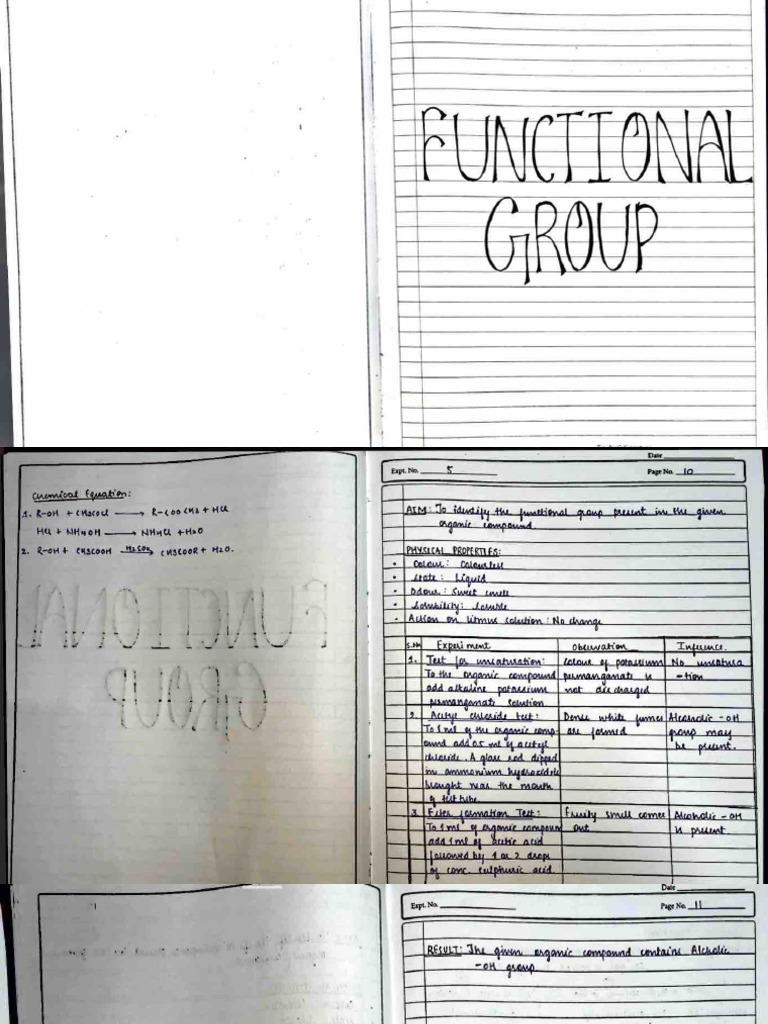 FUNCTIONAL
GROUP
Chemical Equation:
1. R-OH + CH3COCl ⟶ R-COOCH3 + HCl
HCl + NH4OH ⟶ NH4Cl + H2O
2. R-OH + CH3COOH ⟶ CH3COOR + H2O.
Date
Expt. No. 5
Page No. 10
AIM: To identify the functional group present in the given
organic compound.
PHYSICAL PROPERTIES:
• Colour: Colourless
• State: Liquid
• Odour: Sweet smell
• Solubility: Soluble
• Action on litmus solution: No change
S.No Experiment Observation Inference.
1. Test for unsaturation: Colour of potassium No unsatura
To the organic compound permanganate is -tion
add alkaline potassium not discharged
permanganate solution
2. Acetyl chloride test: Dense white fumes Alcoholic -OH
To 1 ml of the organic comp- are formed group may
ound add 0.5 ml of acetyl be present.
chloride. A glass rod dipped
in ammonium hydroxide
brought near the mouth
of test tube.
3. Ester formation Test: Fruity smell comes Alcoholic -OH
To 1 ml of organic compoun out is present.
add 1 ml of acetic acid
followed by 1 or 2 drops
of conc. sulphuric acid.
Date
Expt. No.
Page No. 11
RESULT: The given organic compound contains Alcholic
-OH group.